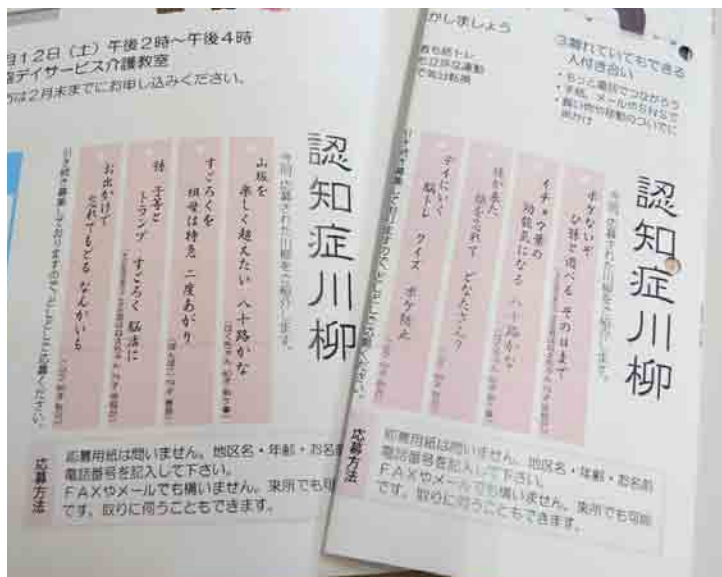 月12日（土）午後2時～午後4時
デイサービス介護教室
は2月末までにお申し込みください。
認知症川柳
今回応募された川柳をご紹介します。
山坂を
楽しく超えたい 八十路かな
すごろくを
祖母は特急 二度あがり
孫 子等と
トランプ すごろく 脳活に
お出かけで
忘れてもどる なんかいも
引き続き募集しておりますので、どしどしご応募ください。
応募方法
応募用紙は問いません。地区名・年齢・お名前
電話番号を記入して下さい。
FAXやメールでも構いません。来所でも可能
です。取りに伺うこともできます。
かしましょう
も筋トレ
も立派な運動
で気分転換
③離れていてもできる
人付き合い
・もっと電話でつながろう
・手紙、メールやSNSで
・買い物や移動のついでに
声かけ
認知症川柳
今回応募された川柳をご紹介します。
ボケないぞ
ひ孫と遊べる その日まで
イチョウ葉の
効能気になる 八十路かな
孫が来た
顔を忘れて どなたさん？
デイにいく
脳トレ クイズ ボケ防止
引き続き募集しておりますので、どしどしご応募ください。
応募方法
応募用紙は問いません。地区名・年齢・お名前
電話番号を記入して下さい。
FAXやメールでも構いません。来所でも可能
です。取りに伺うこともできます。